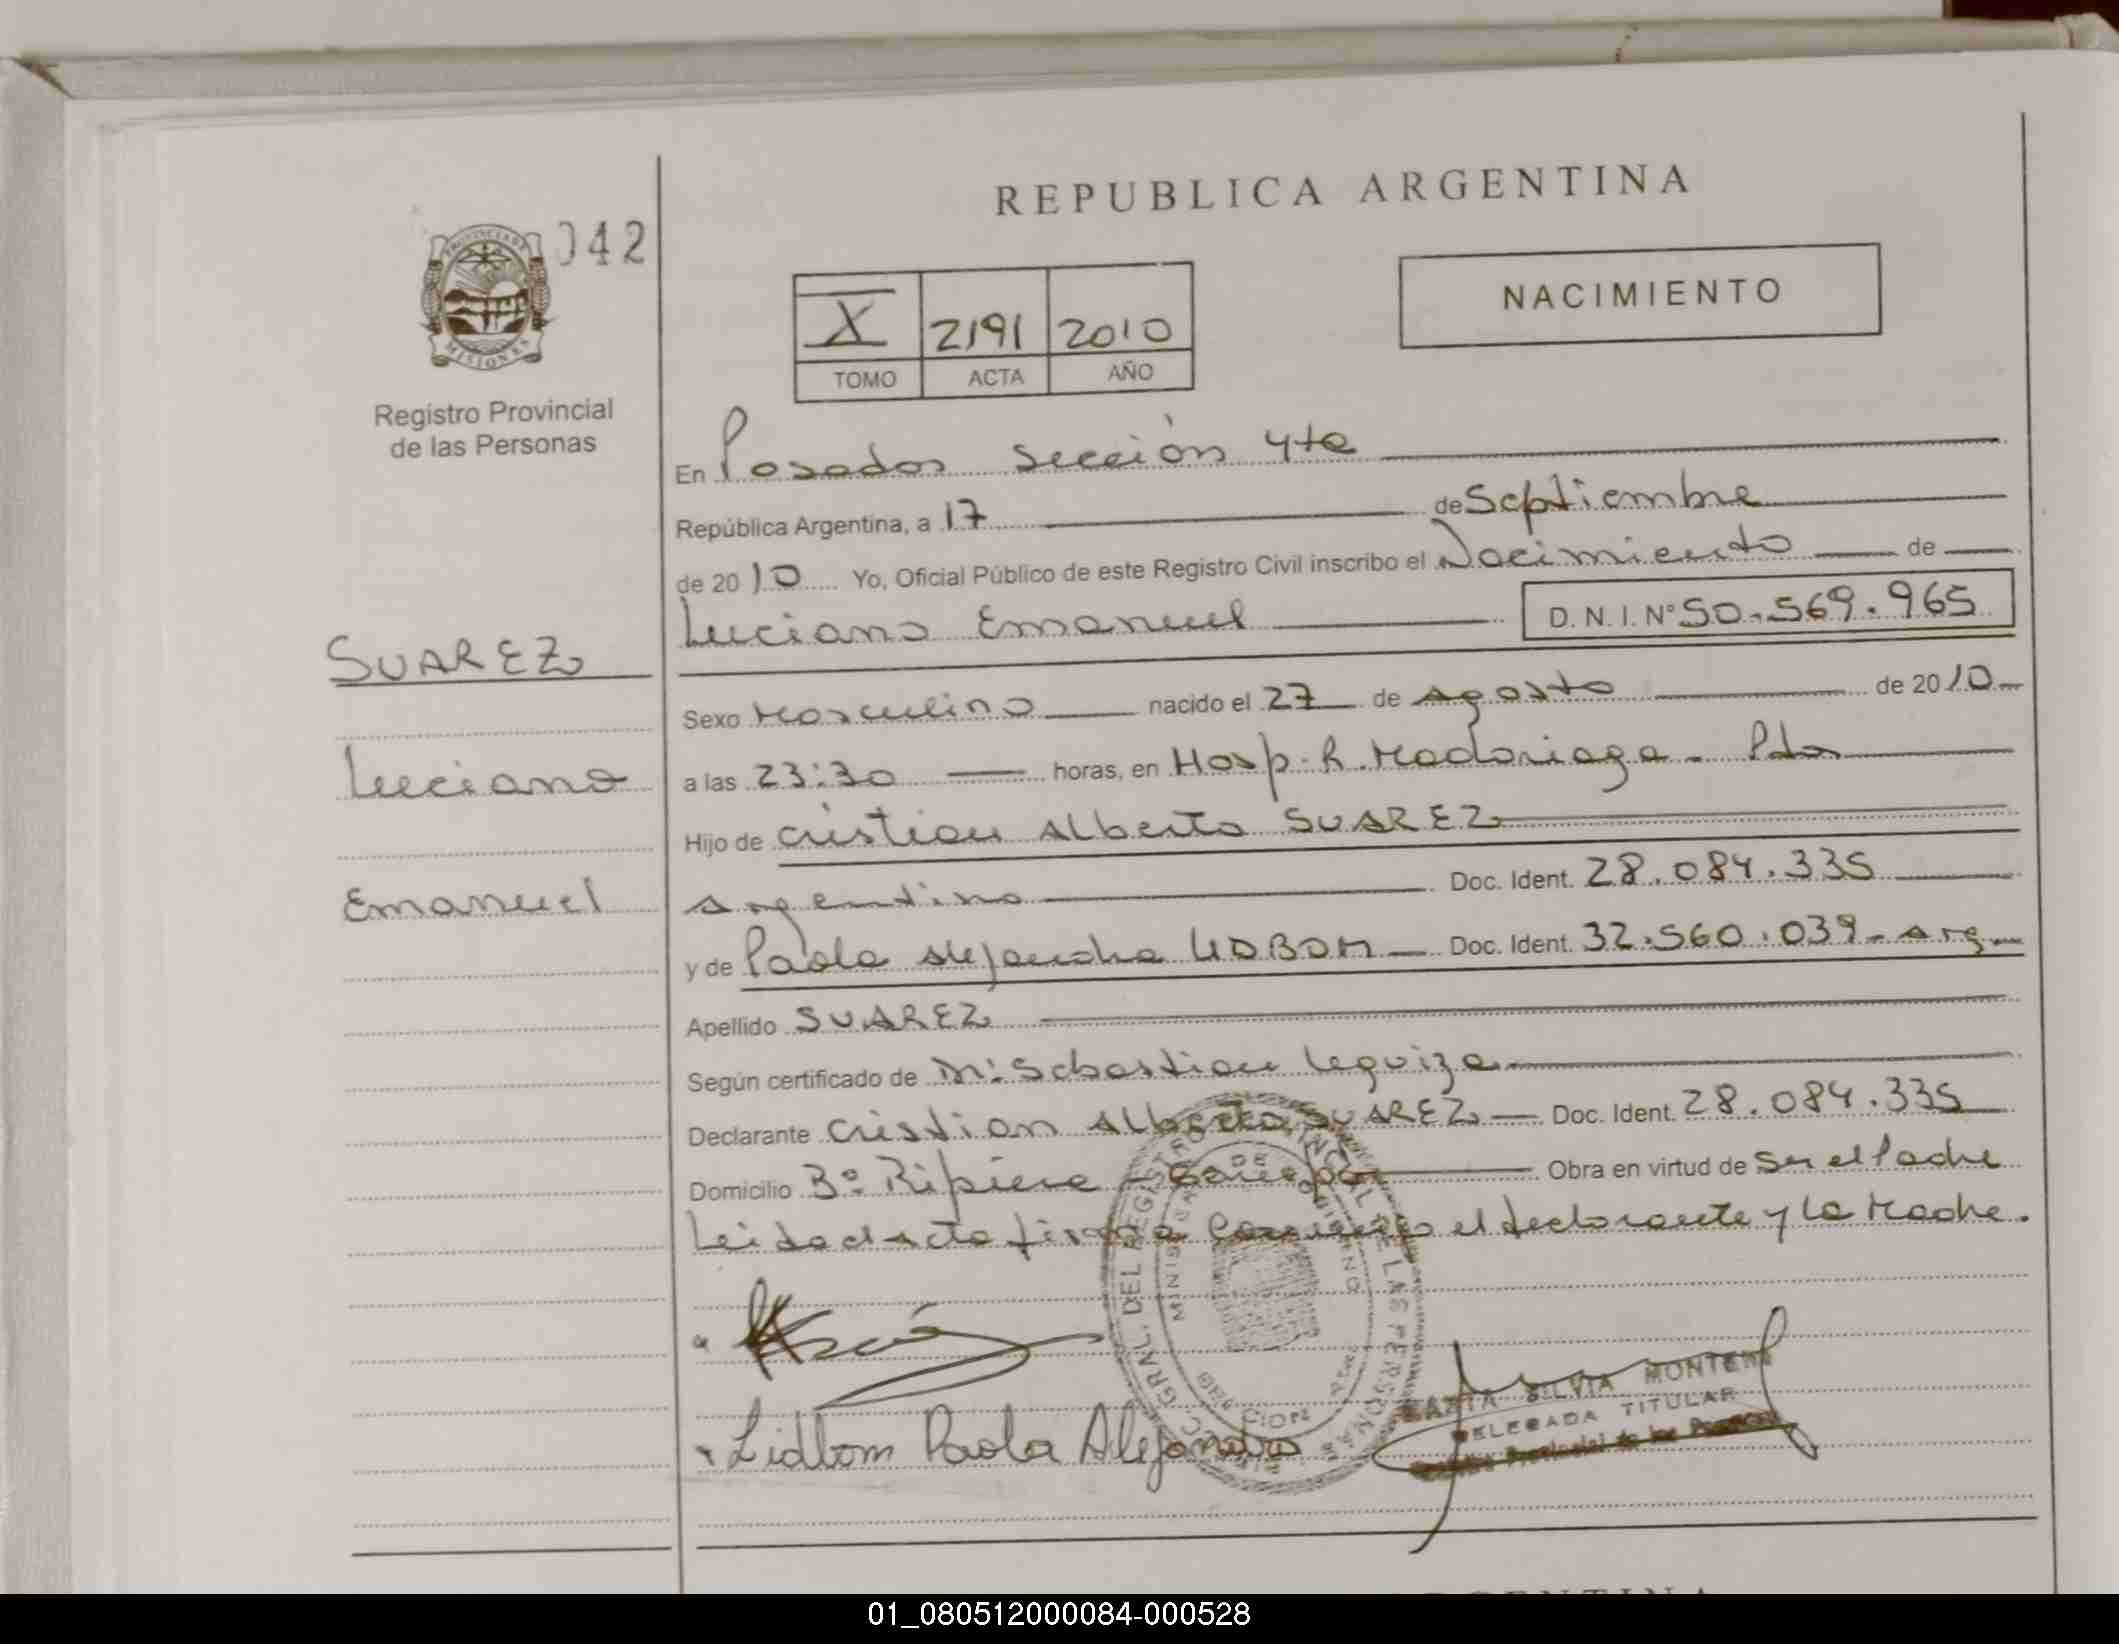 REPUBLICA ARGENTINA
042
PROVINCIA DE
MISIONES
Registro Provincial
de las Personas
NACIMIENTO
X 2191 2010
TOMO ACTA AÑO
En Posadas sección 4ta
República Argentina, a 17 de Septiembre
de 2010 Yo, Oficial Público de este Registro Civil inscribo el Nacimiento de
Luciano Emanuel D.N.I.Nº 50.569.965
SUAREZ
Luciano
Emanuel
Sexo Masculino nacido el 27 de Agosto de 2010
a las 23:30 horas, en Hosp. R. Madariaga - Pdas
Hijo de Cristian Alberto SUAREZ
Argentino Doc. Ident. 28.084.335
y de Paola Alejandra Doc. Ident. 32.560.039 - Arg
Apellido SUAREZ
Según certificado de Dr. Sebastian Leguiza
Declarante Cristian Alberto SUAREZ Doc. Ident. 28.084.335
Domicilio Bº Obra en virtud de Ser el Padre
Leida el Acta firma el declarante y la Madre.
Lidbom Paola Alejandra
SILVIA
DELEGADA TITULAR
Provincial de las Personas
01_080512000084-000528